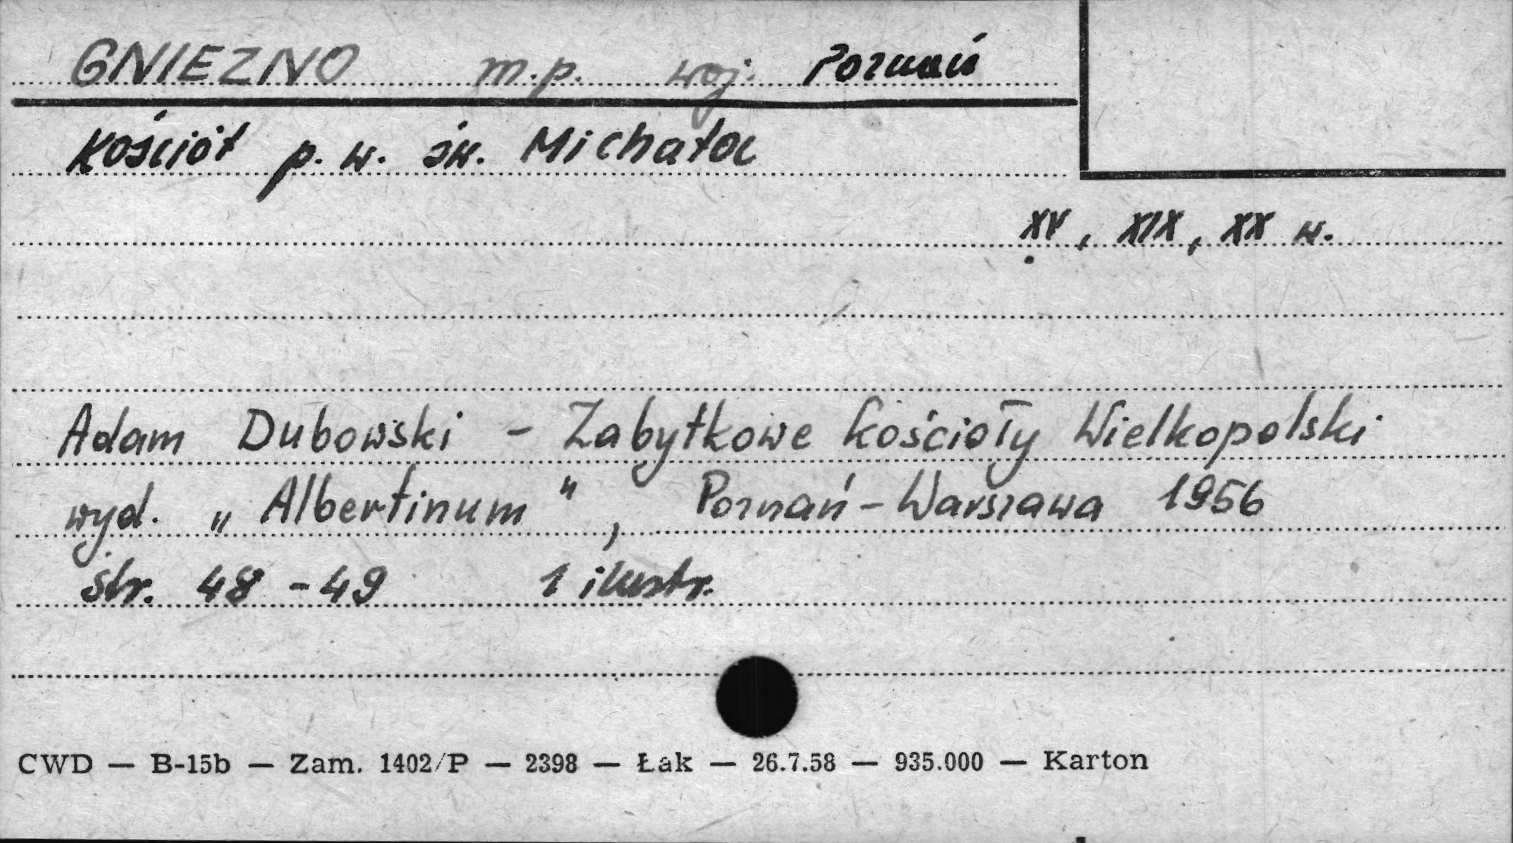 GNIEZNO m.p. woj. Poznań
Kościół p.w. św. Michała
XV, XIX, XX w.
Adam Dubowski - Zabytkowe kościoły Wielkopolski
wyd. „Albertinum", Poznań-Warszawa 1956
str. 48-49 1 ilustr.
CWD — B-15b — Zam. 1402/P — 2398 — Łak — 26.7.58 — 935.000 — Karton